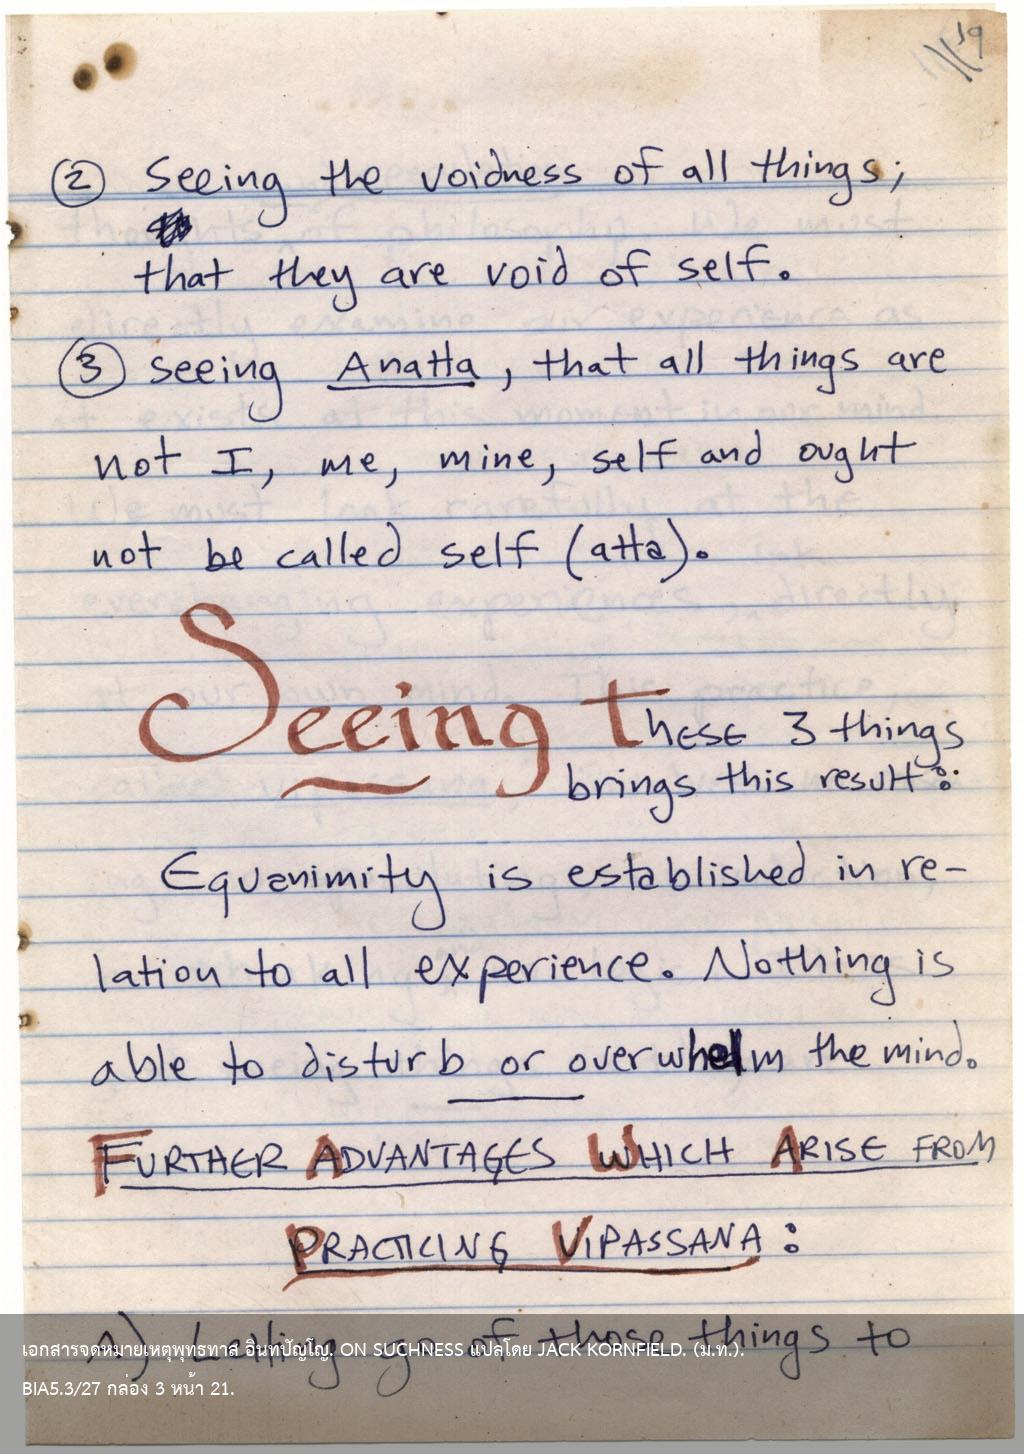 19
② Seeing the voidness of all things;
that they are void of self.
③ seeing Anatta, that all things are
not I, me, mine, self and ought
not be called self (atta).
Seeing these 3 things
brings this result:
Equanimity is established in re-
lation to all experience. Nothing is
able to disturb or overwhelm the mind.
FURTHER ADVANTAGES WHICH ARISE FROM
PRACTICING VIPASSANA:
Letting go of those things to
เอกสารจดหมายเหตุพุทธทาส อินทปัญโญ. ON SUCHNESS แปลโดย JACK KORNFIELD. (ม.ท.).
BIA5.3/27 กล่อง 3 หน้า 21.